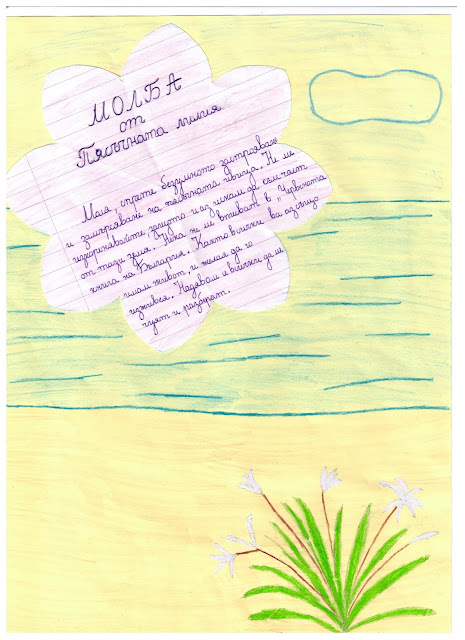 МОЛБА
от
Пясъчната лилия
Моля, спрете безумното застрояване
и замърсяване на пясъчната ивица. Не ме
изкоренявайте защото и аз искам да съм част
от тази земя. Нека не ме вписват в "Червената
книга на България. Както всички вас аз също
имам живот, и желая да го
изживея. Надявам се всички да ме
чуят и разберат.